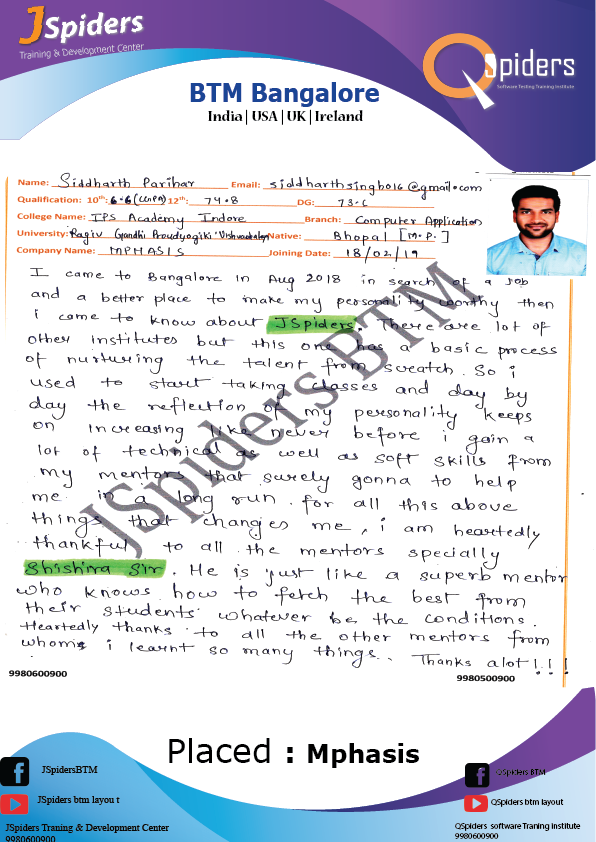 JSpiders
Training & Development Center
QSpiders
Software Testing Training Institute
BTM Bangalore
India| USA | UK | Ireland
Name: Siddharth Parihar Email: siddharthsingh016@gmail.com
Qualification: 10th: 6.6(CGPA) 12th: 74.8 DG: 73.6
College Name: IPS Academy Indore Branch: Computer Application
University: Rajiv Gandhi Proudyogiki Vishvavidyalaya Native: Bhopal [M.P.]
Company Name: MPHASIS Joining Date: 18/02/19
I came to Bangalore in Aug 2018 in search of a job
and a better place to make my personality worthy then
i came to know about JSpiders. There are lot of
other institutes but this one has a basic process
of nurturing the talent from scratch. So i
used to start taking classes and day by
day the reflection of my personality keeps
on increasing like never before i gain a
lot of technical as well as soft skills from
my mentors that surely gonna to help
me in a long run. for all this above
things that changes me, i am heartedly
thankful to all the mentors specially
Shishira Sir. He is just like a superb mentor
who knows how to fetch the best from
their students whatever be the conditions.
Heartedly thanks to all the other mentors from
whoms i learnt so many things.. Thanks alot!!!
JSpiders BTM
9980600900 9980500900
Placed : Mphasis
JSpidersBTM
QSpiders BTM
JSpiders btm layou t
QSpiders btm layout
JSpiders Traning & Development Center
9980600900
QSpiders software Traning institute
9980600900